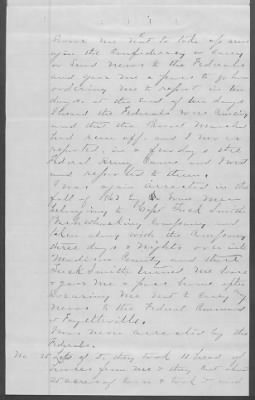 Swore me not to take up arms
upon the Confederacy or carry
or send news to the Federals
and gave me a pass to go home
ordering me to report in ten
days at the end of ten days
I heard the Federals were coming
and that the Marshal
had run off. and I never
reported, in a few days the
Federal Army came and I went
and reported to them.
I was again arrested in the
fall of 62 by some men
belonging to Capt Tuck Smith
Bushwhacking Company and
taken along with the company
three days & nights over into
Madison County and there
Tuck Smith turned me loose
& gave me a pass home after
Swearing me not to carry any
news to the Federal Command
at Fayetteville.
I was never arrested by the
Federals.
No 25 they took 11 head of
from me & they
20 acres of Corn & took it and